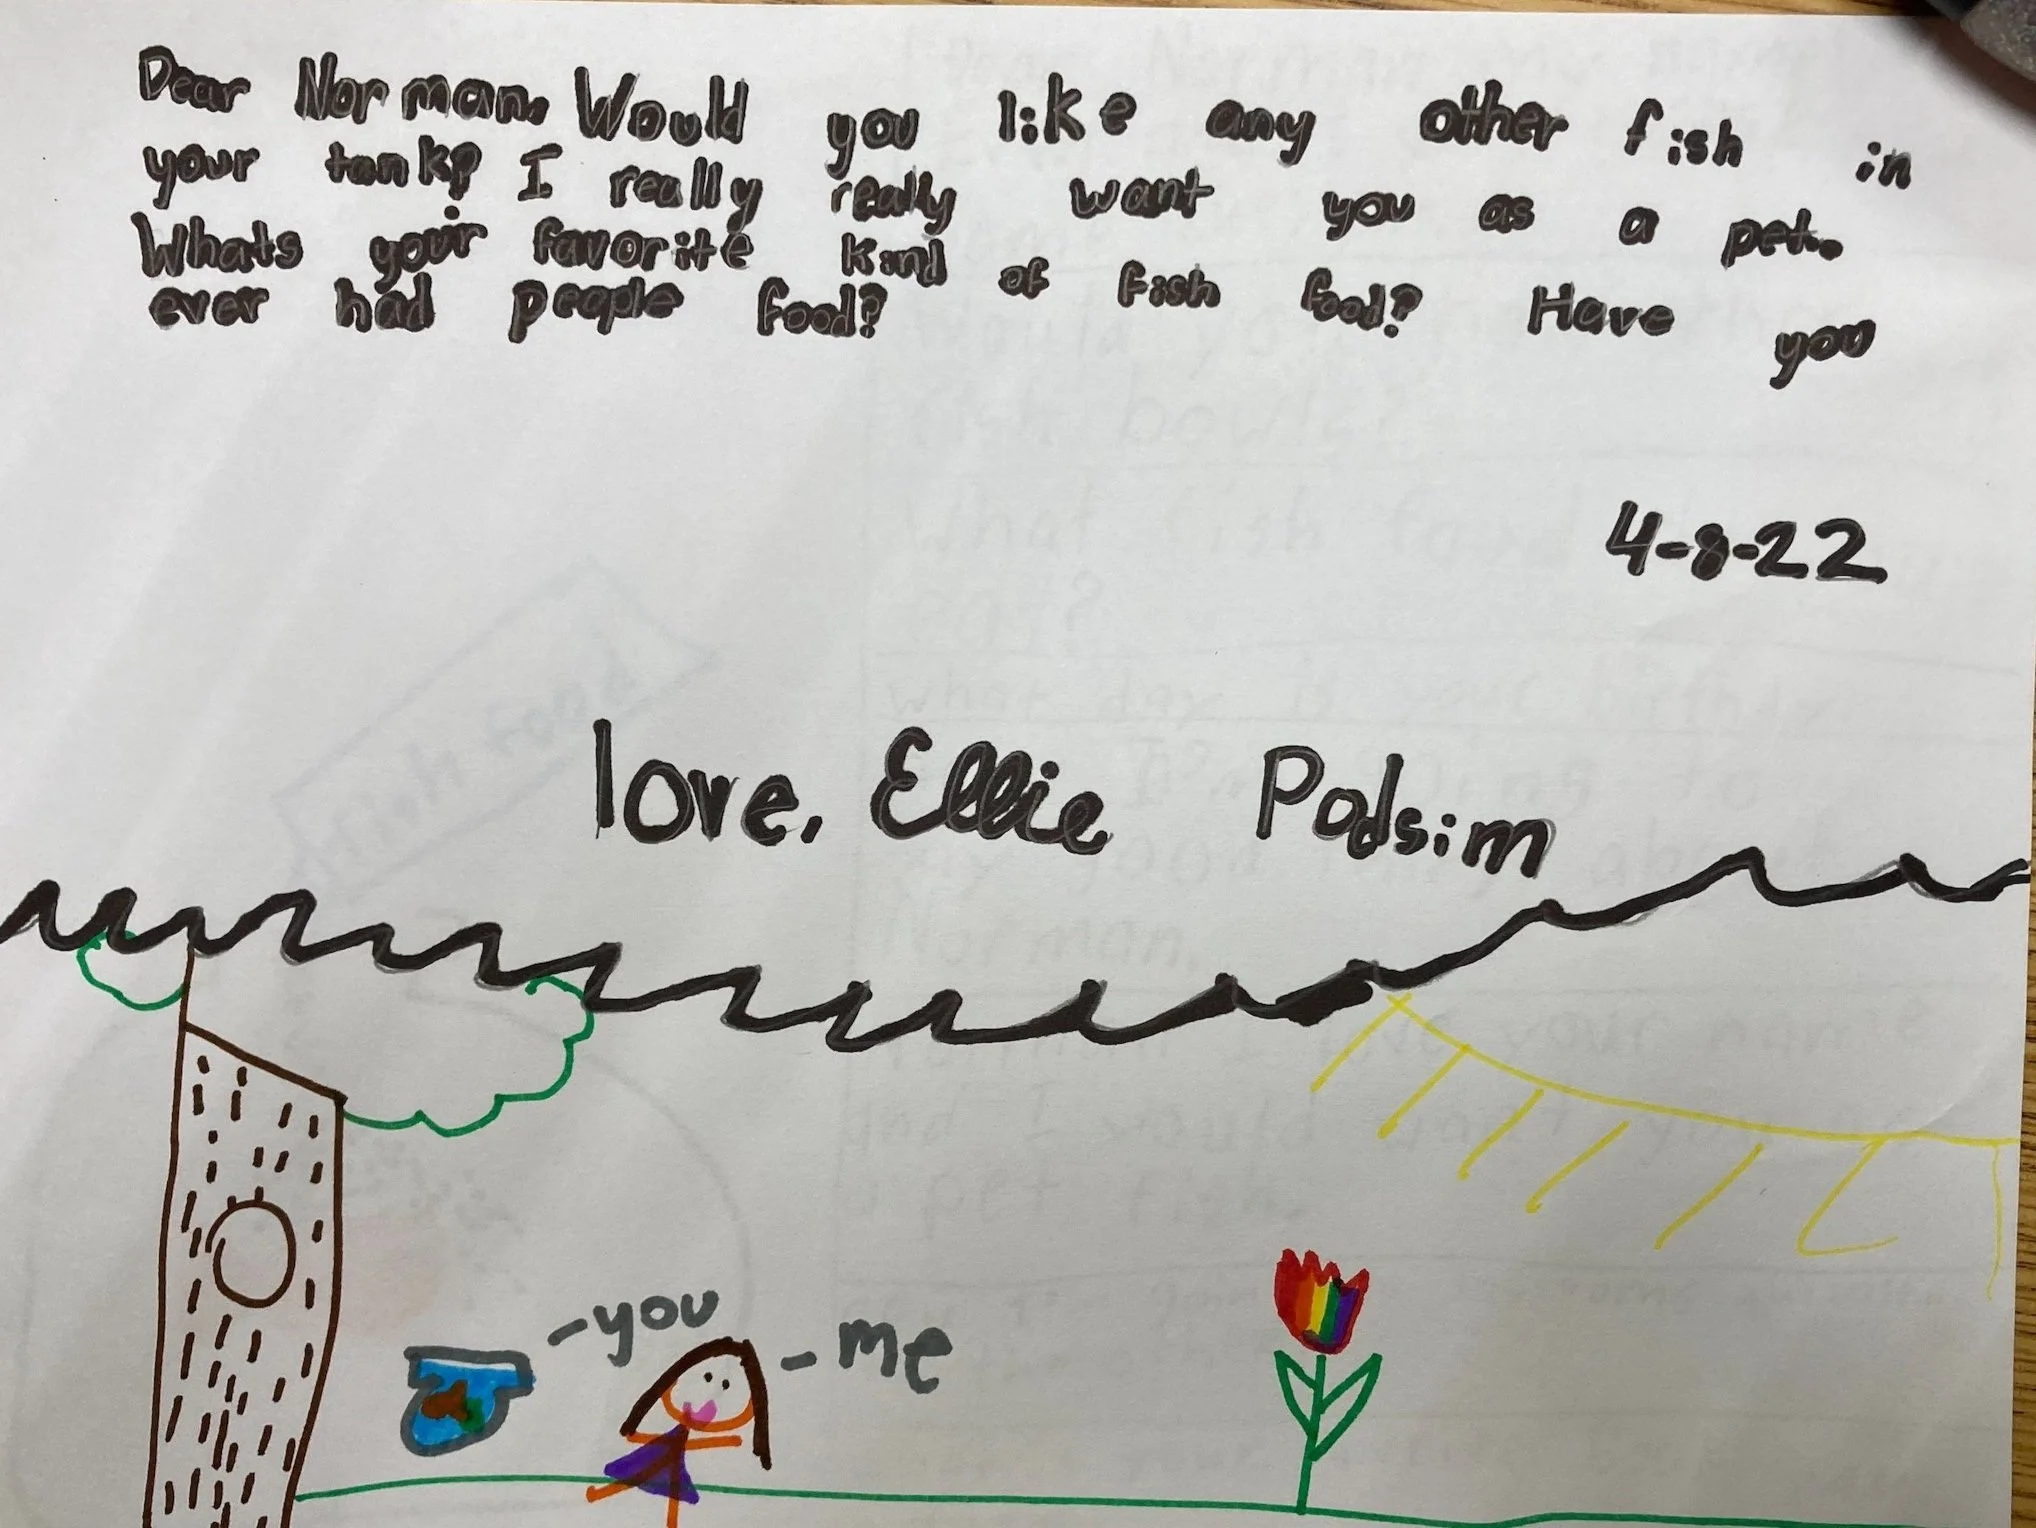 Dear Norman. Would you like any other fish in
your tank? I really really want you as a pet.
Whats your favorite kind of fish food? Have you
ever had people food?
4-8-22
love, Ellie Podsim
-you
-me